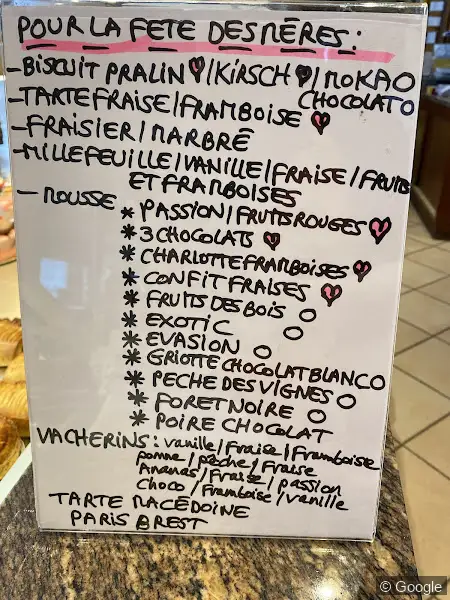 POUR LA FETE DES MÈRES:
-BISCUIT PRALIN♥/KIRSCH♥/MOKAO
CHOCOLATO
-TARTE FRAISE/FRAMBOISE ♥
-FRAISIER/MARBRÉ
-MILLEFEUILLE/VANILLE/FRAISE/FRUITS
ET FRAMBOISES
- MOUSSE * PASSION/FRUITS ROUGES ♥
* 3 CHOCOLATS ♥
* CHARLOTTE FRAMBOISES ♥
* CONFIT FRAISES ♥
* FRUITS DES BOIS O
* EXOTIC O
* EVASION O
* GRIOTTE CHOCOLAT BLANC O
* PECHE DES VIGNES O
* FORET NOIRE O
* POIRE CHOCOLAT
VACHERINS: vanille/Fraise/Framboise
pomme/pêche/Fraise
Ananas/Fraise/passion
Choco/Framboise/vanille
TARTE MACÉDOINE
PARIS BREST
© Google